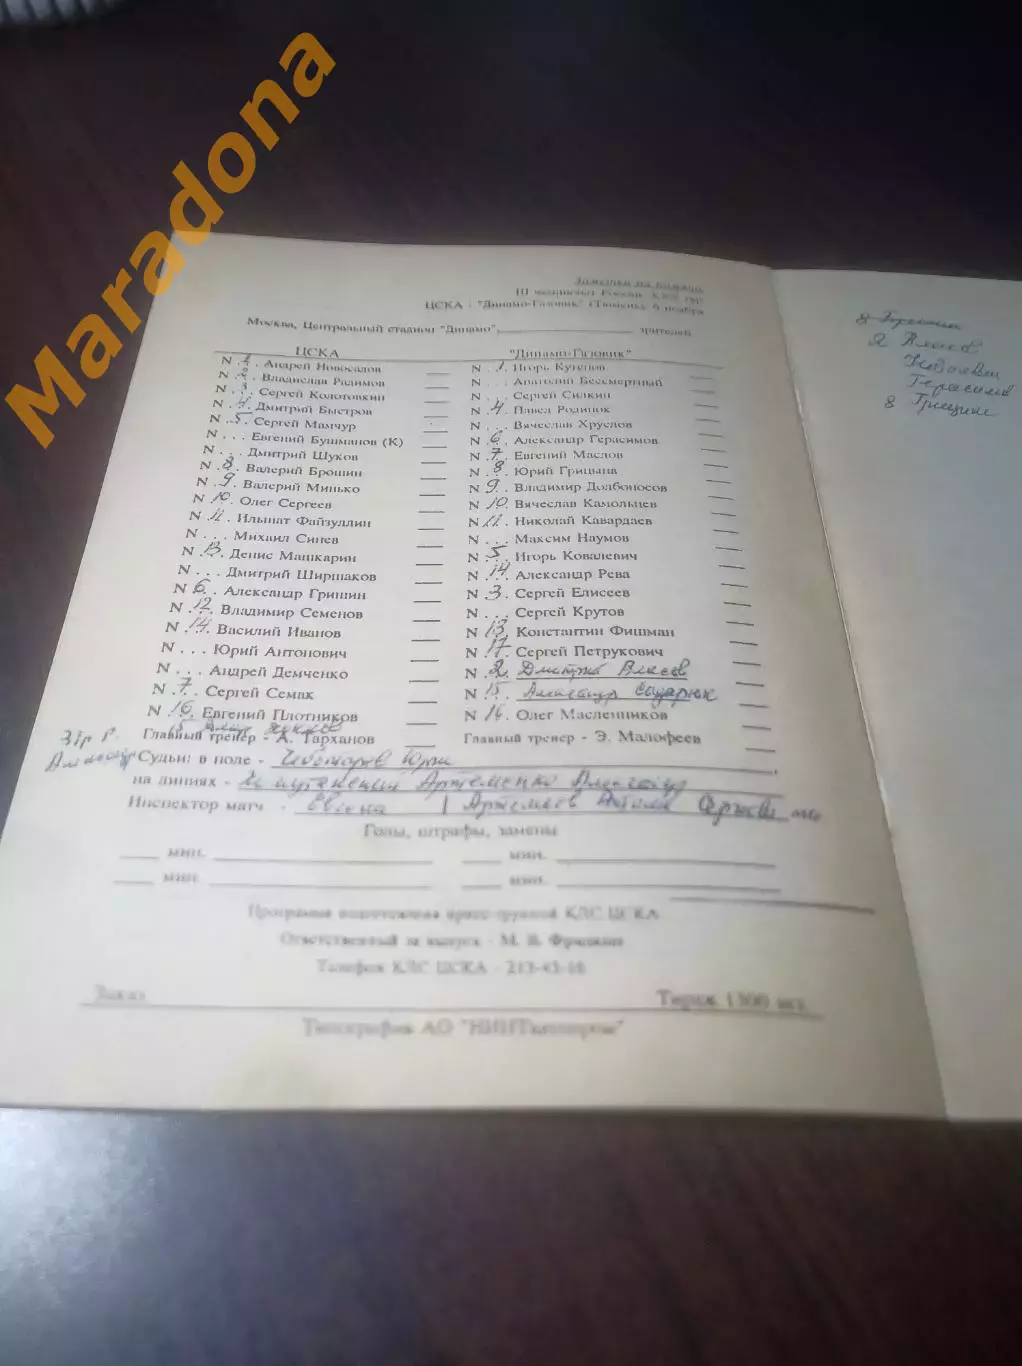 Maradona
Заметки на память
III чемпионат России. XXX тур
ЦСКА - "Динамо-Газовик" (Тюмень). 6 ноября
Москва, Центральный стадион "Динамо", зрителей
ЦСКА "Динамо-Газовик"
N Андрей Новосадов N .1. Игорь Кутепов
N .2. Владислав Радимов N ... Анатолий Бессмертный
N .3. Сергей Колотовкин N ... Сергей Силкин
N .4. Дмитрий Быстров N .4. Павел Родинок
N .5. Сергей Мамчур N ... Вячеслав Хруслов
N ... Евгений Бушманов (К) N .6. Александр Герасимов
N ... Дмитрий Шуков N .7. Евгений Маслов
N .8. Валерий Брошин N .8. Юрий Грицына
N .9. Валерий Минько N .9. Владимир Долбоносов
N .10. Олег Сергеев N .10. Вячеслав Камольцев
N .11. Ильшат Файзуллин N .11. Николай Кавардаев
N ... Михаил Синев N ... Максим Наумов
N .13. Денис Машкарин N .5. Игорь Ковалевич
N ... Дмитрий Ширшаков N .14. Александр Рева
N .6. Александр Гришин N .3. Сергей Елисеев
N .12. Владимир Семенов N ... Сергей Крутов
N .14. Василий Иванов N .13. Константин Фишман
N ... Юрий Антонович N .17. Сергей Петрукович
N ... Андрей Демченко N .2. Дмитрий Власов
N .7. Сергей Семак N .15. Александр
N .16. Евгений Плотников N .16. Олег Масленников
15
Главный тренер - А. Тарханов Главный тренер - Э. Малофеев
Судьи: в поле - Чеботарев Юрий
на линиях - Артеменко Александр
Инспектор матч -
Голы, штрафы, замены
мин. мин.
мин. мин.
Программа подготовлена пресс-группой КЛС ЦСКА
Ответственный за выпуск - М. В.
Телефон КЛС ЦСКА - 213-43-16
Заказ Тираж 1300 экз.
Типография АО
Я Власов
Герасимов
8 Грицина